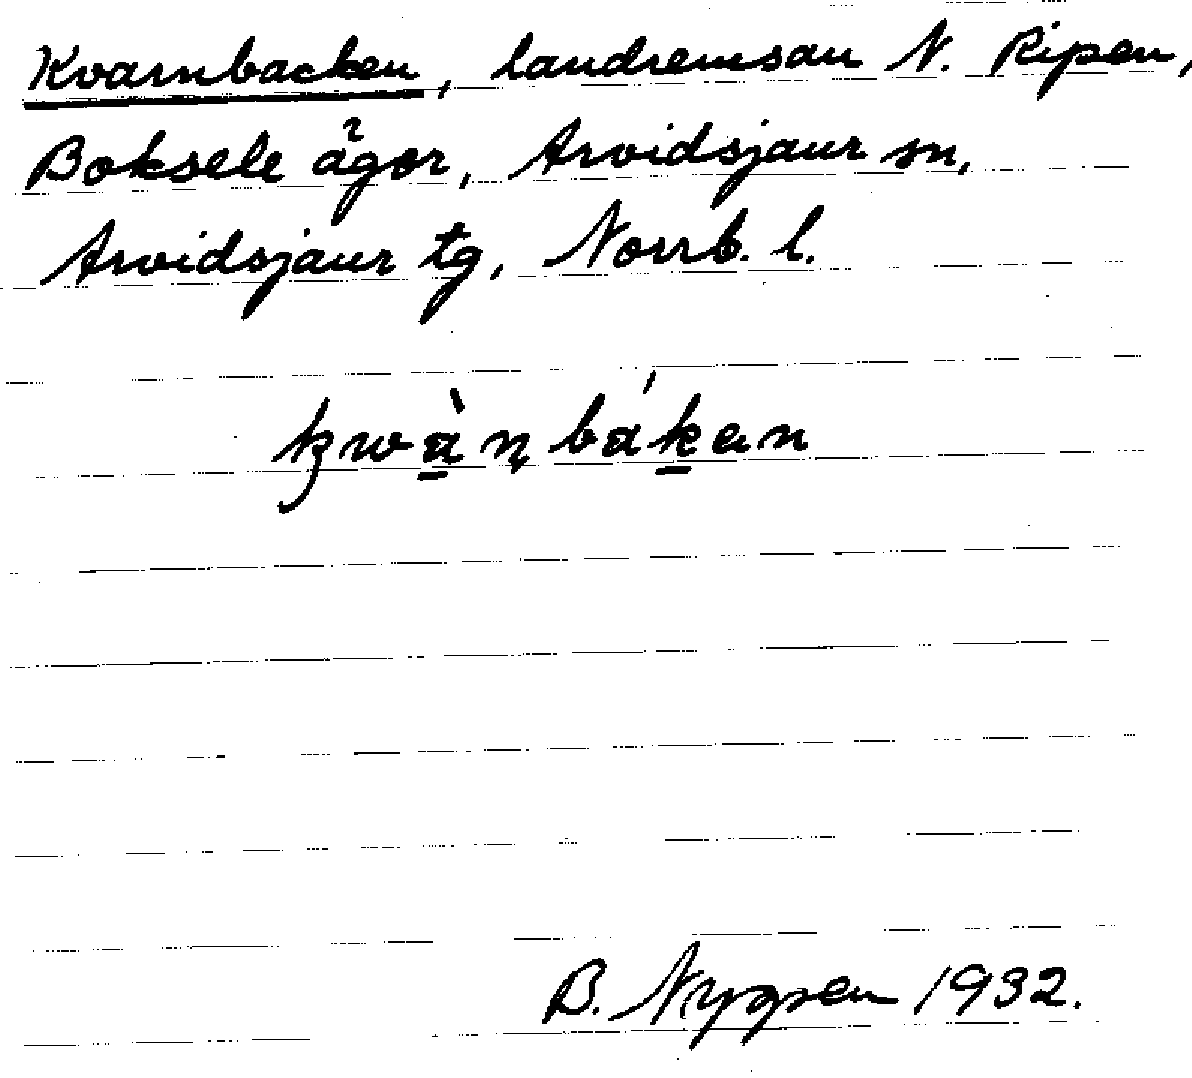 Kvarnbacken, landremsan N. Ripen,
Boksele ägor, Arvidsjaur sn,
Arvidsjaur tg, Norrb. l.
B. 1932.